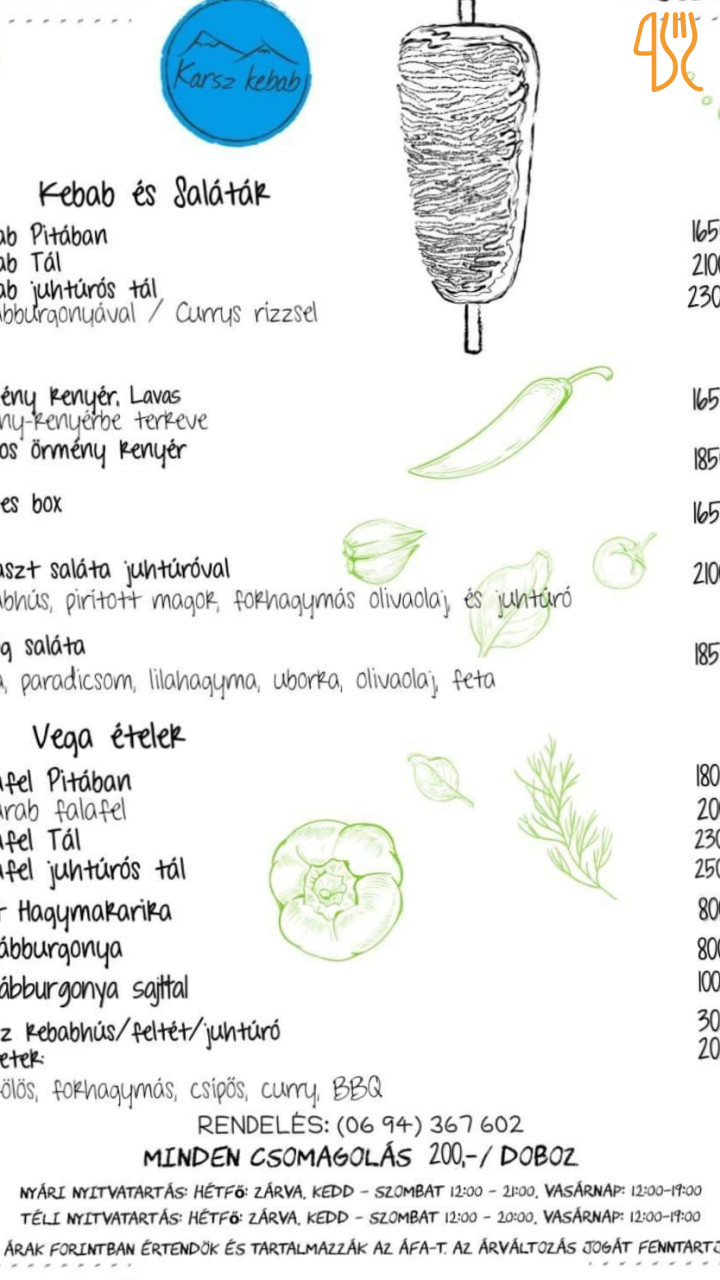 Karsz kebab
Kebab és Saláták
ab Pitában 165
ab Tál 210
ab juhtúrós tál 230
ábburgonyával / Currys rizzsel
ény kenyér, Lavas 165
ny-kenyérbe tekerve
os örmény kenyér 185
es box 165
aszt saláta juhtúróval 210
abhús, pirított magok, fokhagymás olivaolaj, és juhtúró
g saláta 185
a, paradicsom, lilahagyma, uborka, olivaolaj, feta
Vega ételek
afel Pitában 180
arab falafel 20
afel Tál 230
afel juhtúrós tál 250
r Hagymakarika 80
ábburgonya 80
ábburgonya sajttal 100
z kebabhús/feltét/juhtúró 30
etek: 20
ölös, fokhagymás, csípős, curry, BBQ
RENDELÉS: (06 94) 367 602
MINDEN CSOMAGOLÁS 200,-/ DOBOZ
NYÁRI NYITVATARTÁS: HÉTFŐ: ZÁRVA, KEDD - SZOMBAT 12:00 - 21:00, VASÁRNAP: 12:00-19:00
TÉLI NYITVATARTÁS: HÉTFŐ: ZÁRVA, KEDD - SZOMBAT 12:00 - 20:00, VASÁRNAP: 12:00-19:00
ÁRAK FORINTBAN ÉRTENDŐK ÉS TARTALMAZZÁK AZ ÁFA-T. AZ ÁRVÁLTOZÁS JOGÁT FENNTARTJ